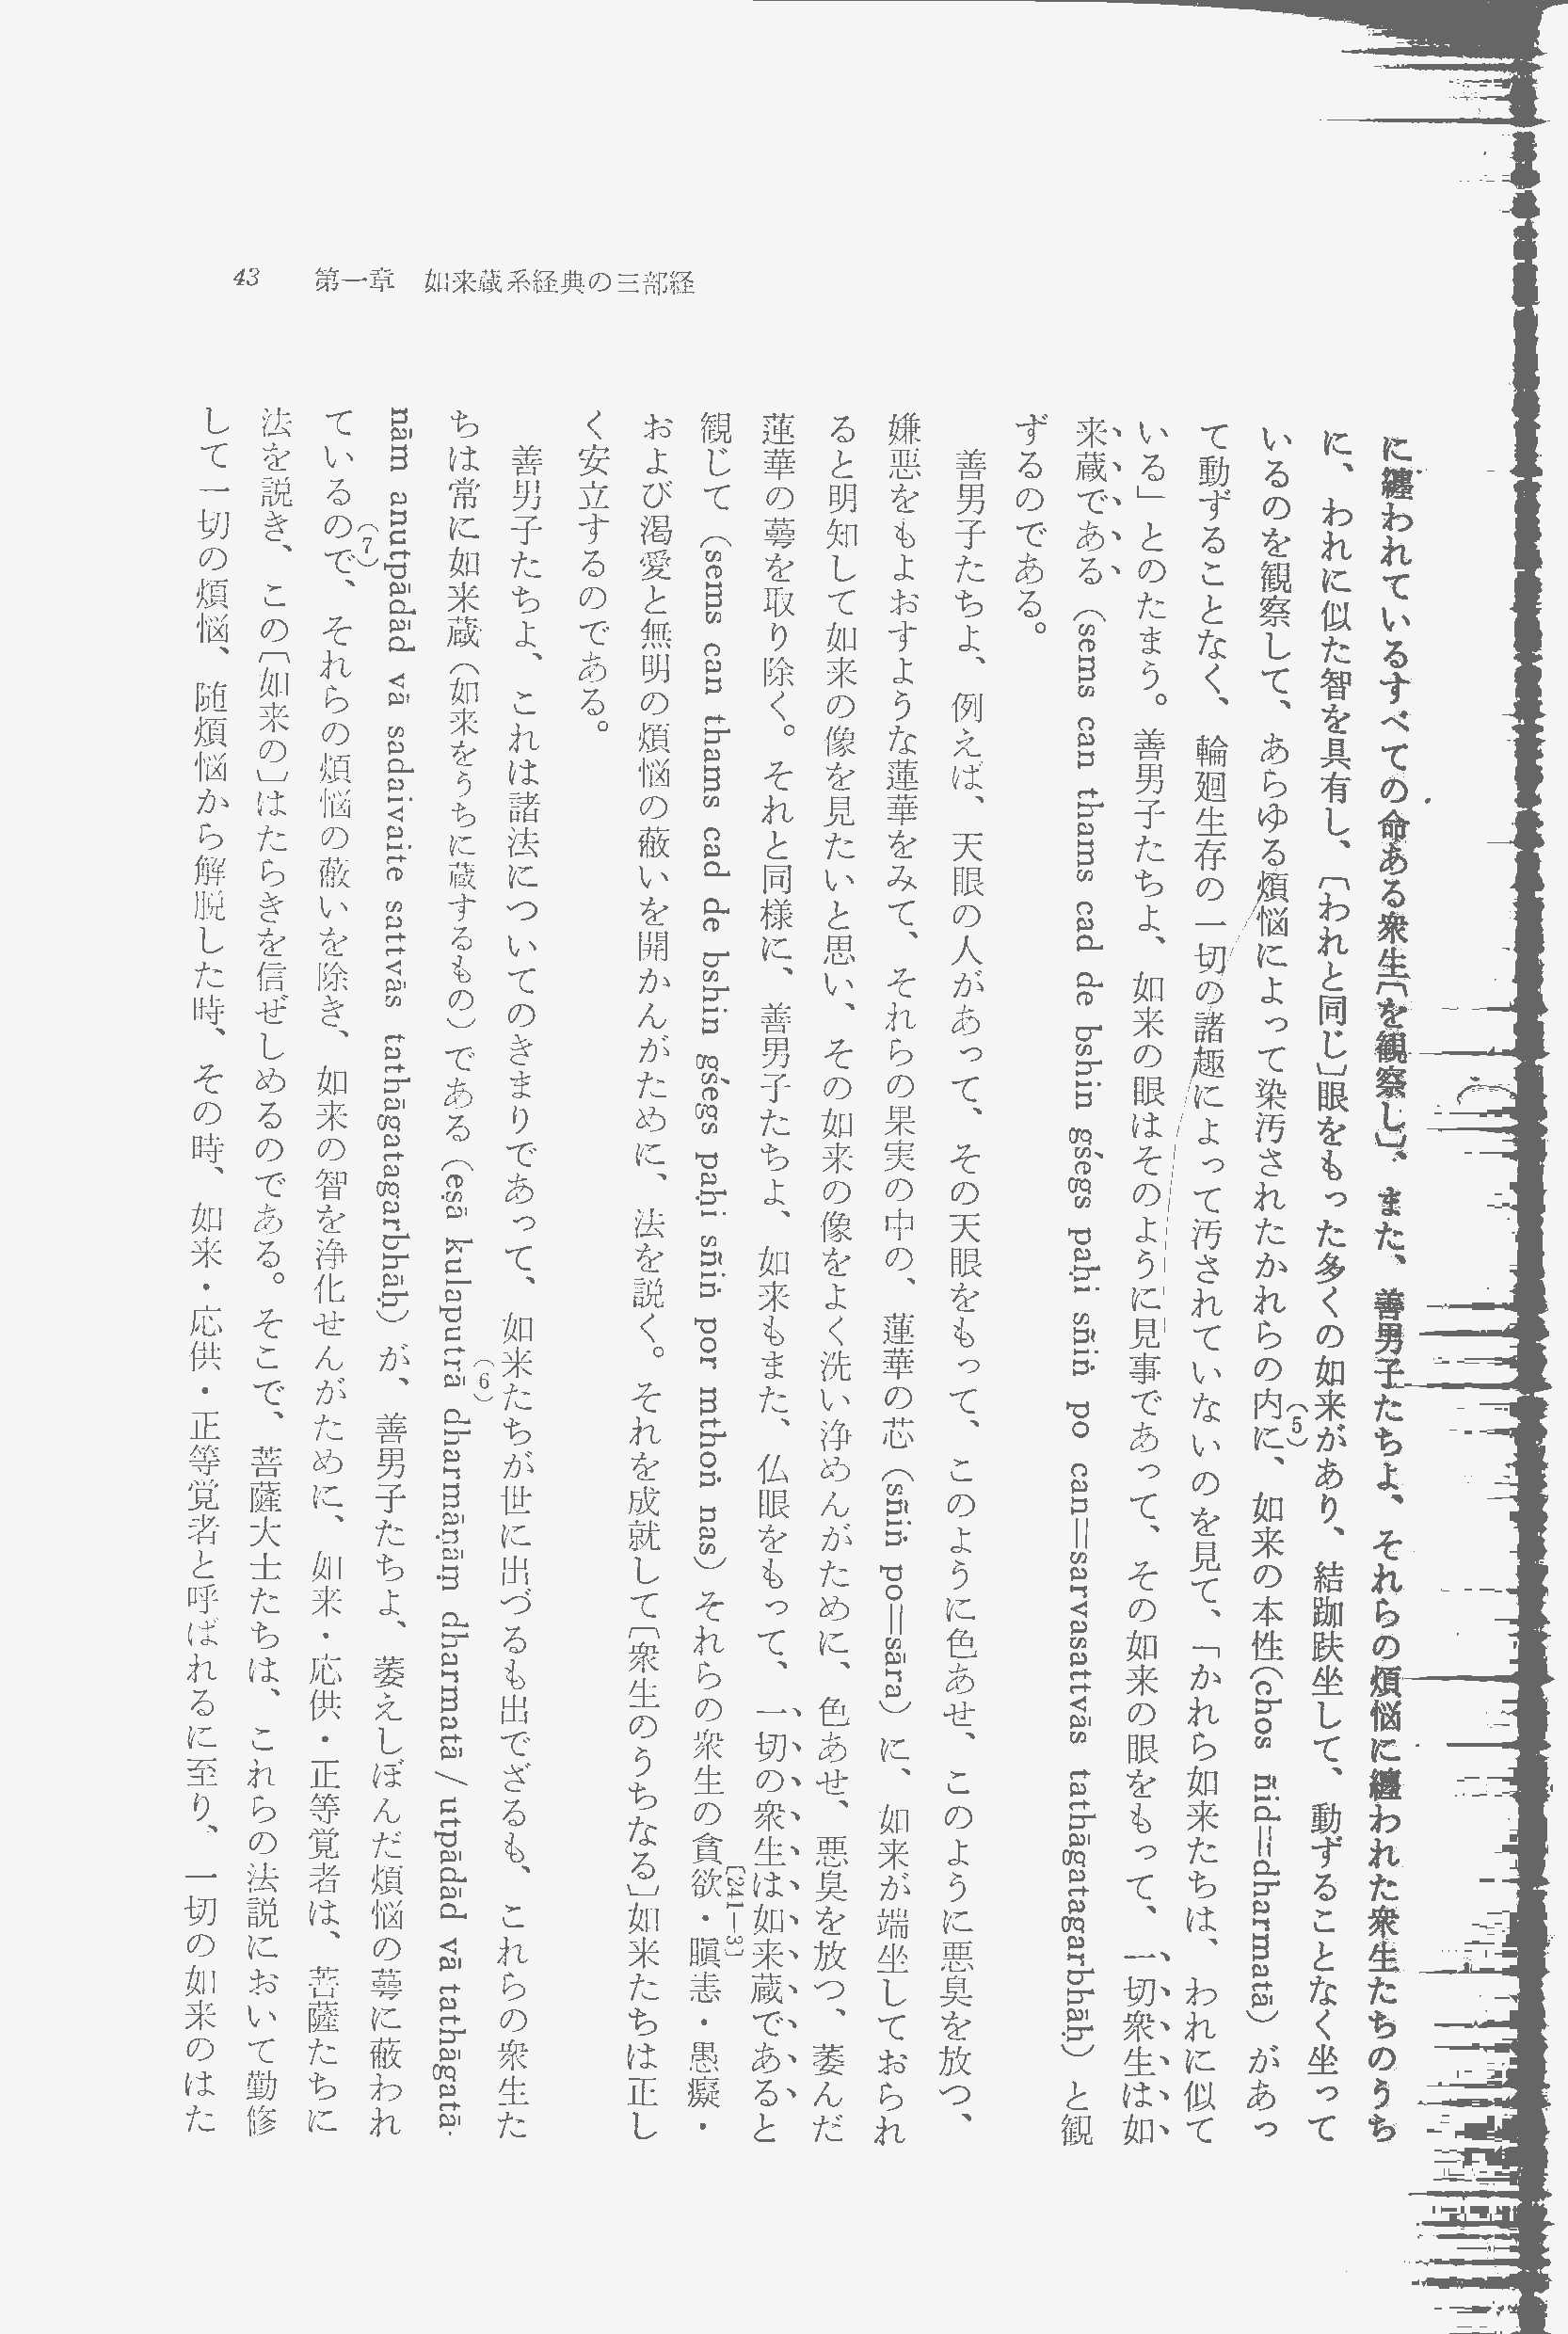 43 第一章 如来蔵系経典の三部経
に纏われているすべての命ある衆生〔を観察し〕、また、善男子たちよ、それらの煩悩に纏われた衆生たちのうち
に、われに似た智を具有し、〔われと同じ〕眼をもった多くの如来があり、結跏趺坐して、動ずることなく坐って
いるのを観察して、あらゆる煩悩によって染汚されたかれらの内に、(5)如来の本性(chos ñid＝dharmatā)があっ
て動ずることなく、輪廻生存の一切の諸趣によって汚されていないのを見て、「かれら如来たちは、われに似て
いる」とのたまう。善男子たちよ、如来の眼はそのように見事であって、その如来の眼をもって、一切衆生は如
来蔵である(sems can thams cad de bshin gśegs paḥi sñiṅ po can＝sarvasattvās tathāgatagarbhāḥ)と観
ずるのである。
善男子たちよ、例えば、天眼の人があって、その天眼をもって、このように色あせ、このように悪臭を放つ、
嫌悪をもよおすような蓮華をみて、それらの果実の中の、蓮華の芯(sñiṅ po＝sāra)に、如来が端坐しておられ
ると明知して如来の像を見たいと思い、その如来の像をよく洗い浄めんがために、色あせ、悪臭を放つ、萎んだ
蓮華の萼を取り除く。それと同様に、善男子たちよ、如来もまた、仏眼をもって、一切の衆生は如来蔵であると
観じて(sems can thams cad de bshin gśegs paḥi sñiṅ por mthoṅ nas)それらの衆生の貪欲・瞋恚・愚癡・〔241—3〕
および渇愛と無明の煩悩の蔽いを開かんがために、法を説く。それを成就して〔衆生のうちなる〕如来たちは正し
く安立するのである。
善男子たちよ、これは諸法についてのきまりであって、如来たちが世に出づるも出でざるも、これらの衆生た(6)
ちは常に如来蔵(如来をうちに蔵するもの)である(eṣā kulaputrā dharmāṇāṃ dharmatā / utpādād vā tathāgatā-
nām anutpādād vā sadaivaite sattvās tathāgatagarbhāḥ)が、善男子たちよ、萎えしぼんだ煩悩の萼に蔽われ
ているので、(7)それらの煩悩の蔽いを除き、如来の智を浄化せんがために、如来・応供・正等覚者は、菩薩たちに
法を説き、この〔如来の〕はたらきを信ぜしめるのである。そこで、菩薩大士たちは、これらの法説において勤修
して一切の煩悩、随煩悩から解脱した時、その時、如来・応供・正等覚者と呼ばれるに至り、一切の如来のはた